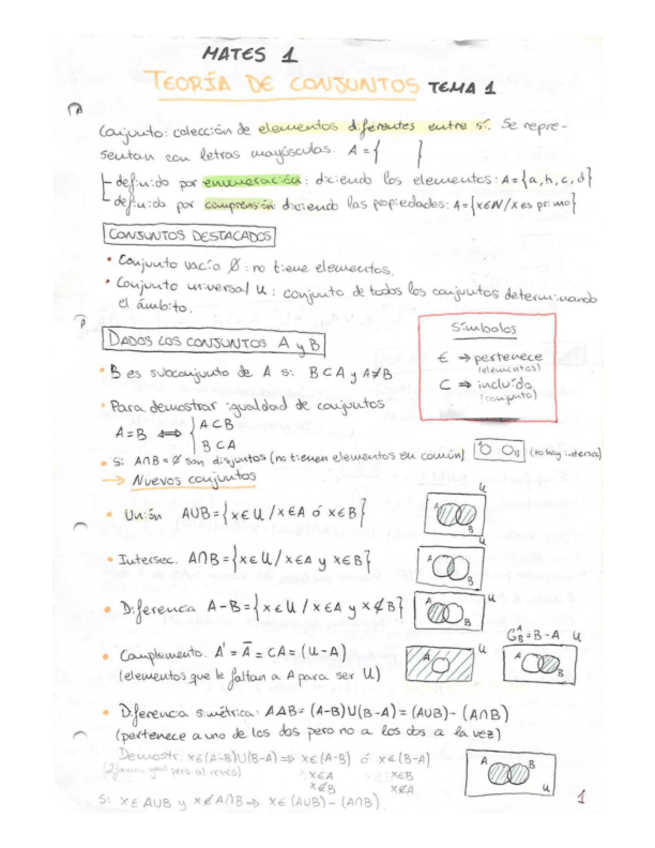 MATES 1
TEORÍA DE CONJUNTOS TEMA 1
Conjunto: colección de elementos diferentes entre sí. Se repre-
sentan con letras mayúsculas. A = { }
definido por enumeración: diciendo los elementos: A = {a, b, c, d}
definido por comprensión: diciendo las propiedades: A = {x∈N / x es primo}
CONJUNTOS DESTACADOS
• Conjunto vacío Ø: no tiene elementos.
• Conjunto universal U: conjunto de todos los conjuntos determinando
el ámbito.
DADOS LOS CONJUNTOS A y B
Símbolos
∈ → pertenece
(elementos)
⊂ ⇒ incluído
(conjunto)
• B es subconjunto de A si B⊂A y A≠B
• Para demostrar igualdad de conjuntos
A=B ⟺ { A⊂B
B⊂A
• Si A∩B=Ø son disjuntos (no tienen elementos en común) A B (no hay intersec)
→ Nuevos conjuntos
• Unión A∪B = {x∈U / x∈A ó x∈B} U A B
• Intersec. A∩B = {x∈U / x∈A y x∈B} U A B
• Diferencia A-B = {x∈U / x∈A y x∉B} U A B
= B-A U
• Complemento. A' = Ā = CA = (U-A) A U A B
(elementos que le faltan a A para ser U)
• Diferencia simétrica: A∆B = (A-B)∪(B-A) = (A∪B) - (A∩B)
(pertenece a uno de los dos pero no a los dos a la vez)
Demostr. x∈(A-B)∪(B-A) ⇒ x∈(A-B) ó x∈(B-A) A B U
x∈A x∈B
x∉B x∉A
Si x∈A∪B y x∉A∩B ⇒ x∈(A∪B) - (A∩B).
1